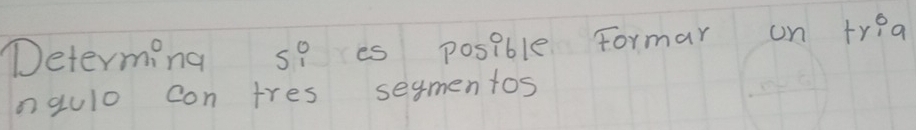 Determina si es posible Formar un tria
ngulo con tres segmentos